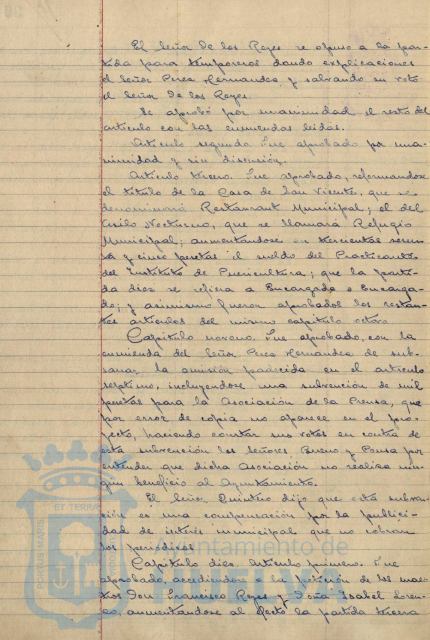 El Señor De los Reyes se opuso a la par-
tida para temporeros dando explicaciones
el Señor Perez Hernandez y salvando su voto
el Señor De los Reyes.
Se aprobó por unanimidad el resto del
articulo con las enmiendas leidas.
Articulo segundo. Fue aprobado por una-
nimidad y sin discusión.
Articulo tercero. Fue aprobado, reformandose
el titulo de la Casa de San Vicente, que se
denominará Restaurant Municipal; el del
Asilo Nocturno, que se llamará Refugio
Municipal; aumentandose en trescientas sesen-
ta y cinco pesetas el sueldo del Practicante
del Instituto de Puericultura; que la parti-
da diez se refiera a Encargado o Encarga-
da; y asimismo fueron aprobados los restan-
tes articulos del mismo capitulo octavo.
Capitulo noveno. Fue aprobado, con la
enmienda del Señor Perez Hernandez de sub-
sanar la omisión padecida en el articulo
septimo, incluyendose una subvención de mil
pesetas para la Asociación de la Prensa, que
por error de copia no aparece en el pro-
yecto, haciendo constar sus votos en contra de
esta subvención los Señores Bueno y Ponsa por
entender que dicha Asociación no realiza nin-
gun beneficio al Ayuntamiento.
El Señor Quintero dijo que esta subven-
ción es una compensación por la publici-
dad de interés municipal que no cobran
los periodicos.
Capitulo diez. Articulo primero. Fue
aprobado, accediendose a la petición de los maes-
tros Don Francisco Reyes y Doña Isabel Loren-
zo, aumentandose al efecto la partida tercera
Ayuntamiento de
PORTUS MARIS
ET TERRAE